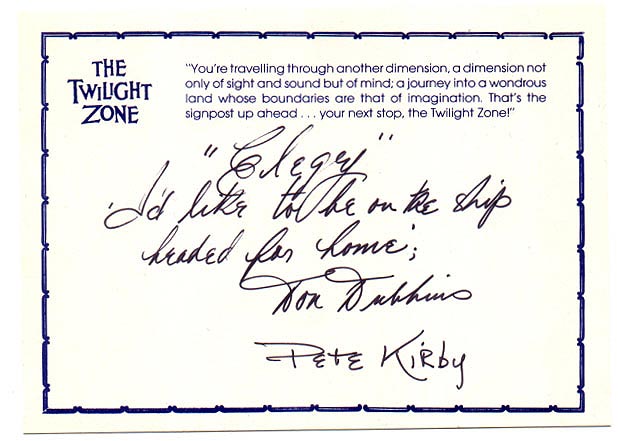 THE
TWILIGHT
ZONE
"You're travelling through another dimension, a dimension not
only of sight and sound but of mind; a journey into a wondrous
land whose boundaries are that of imagination. That's the
signpost up ahead . . . your next stop, the Twilight Zone!"
"Elegy"
I'd like to be on the ship
headed for home;
Don Dubbins
PETE KIRby